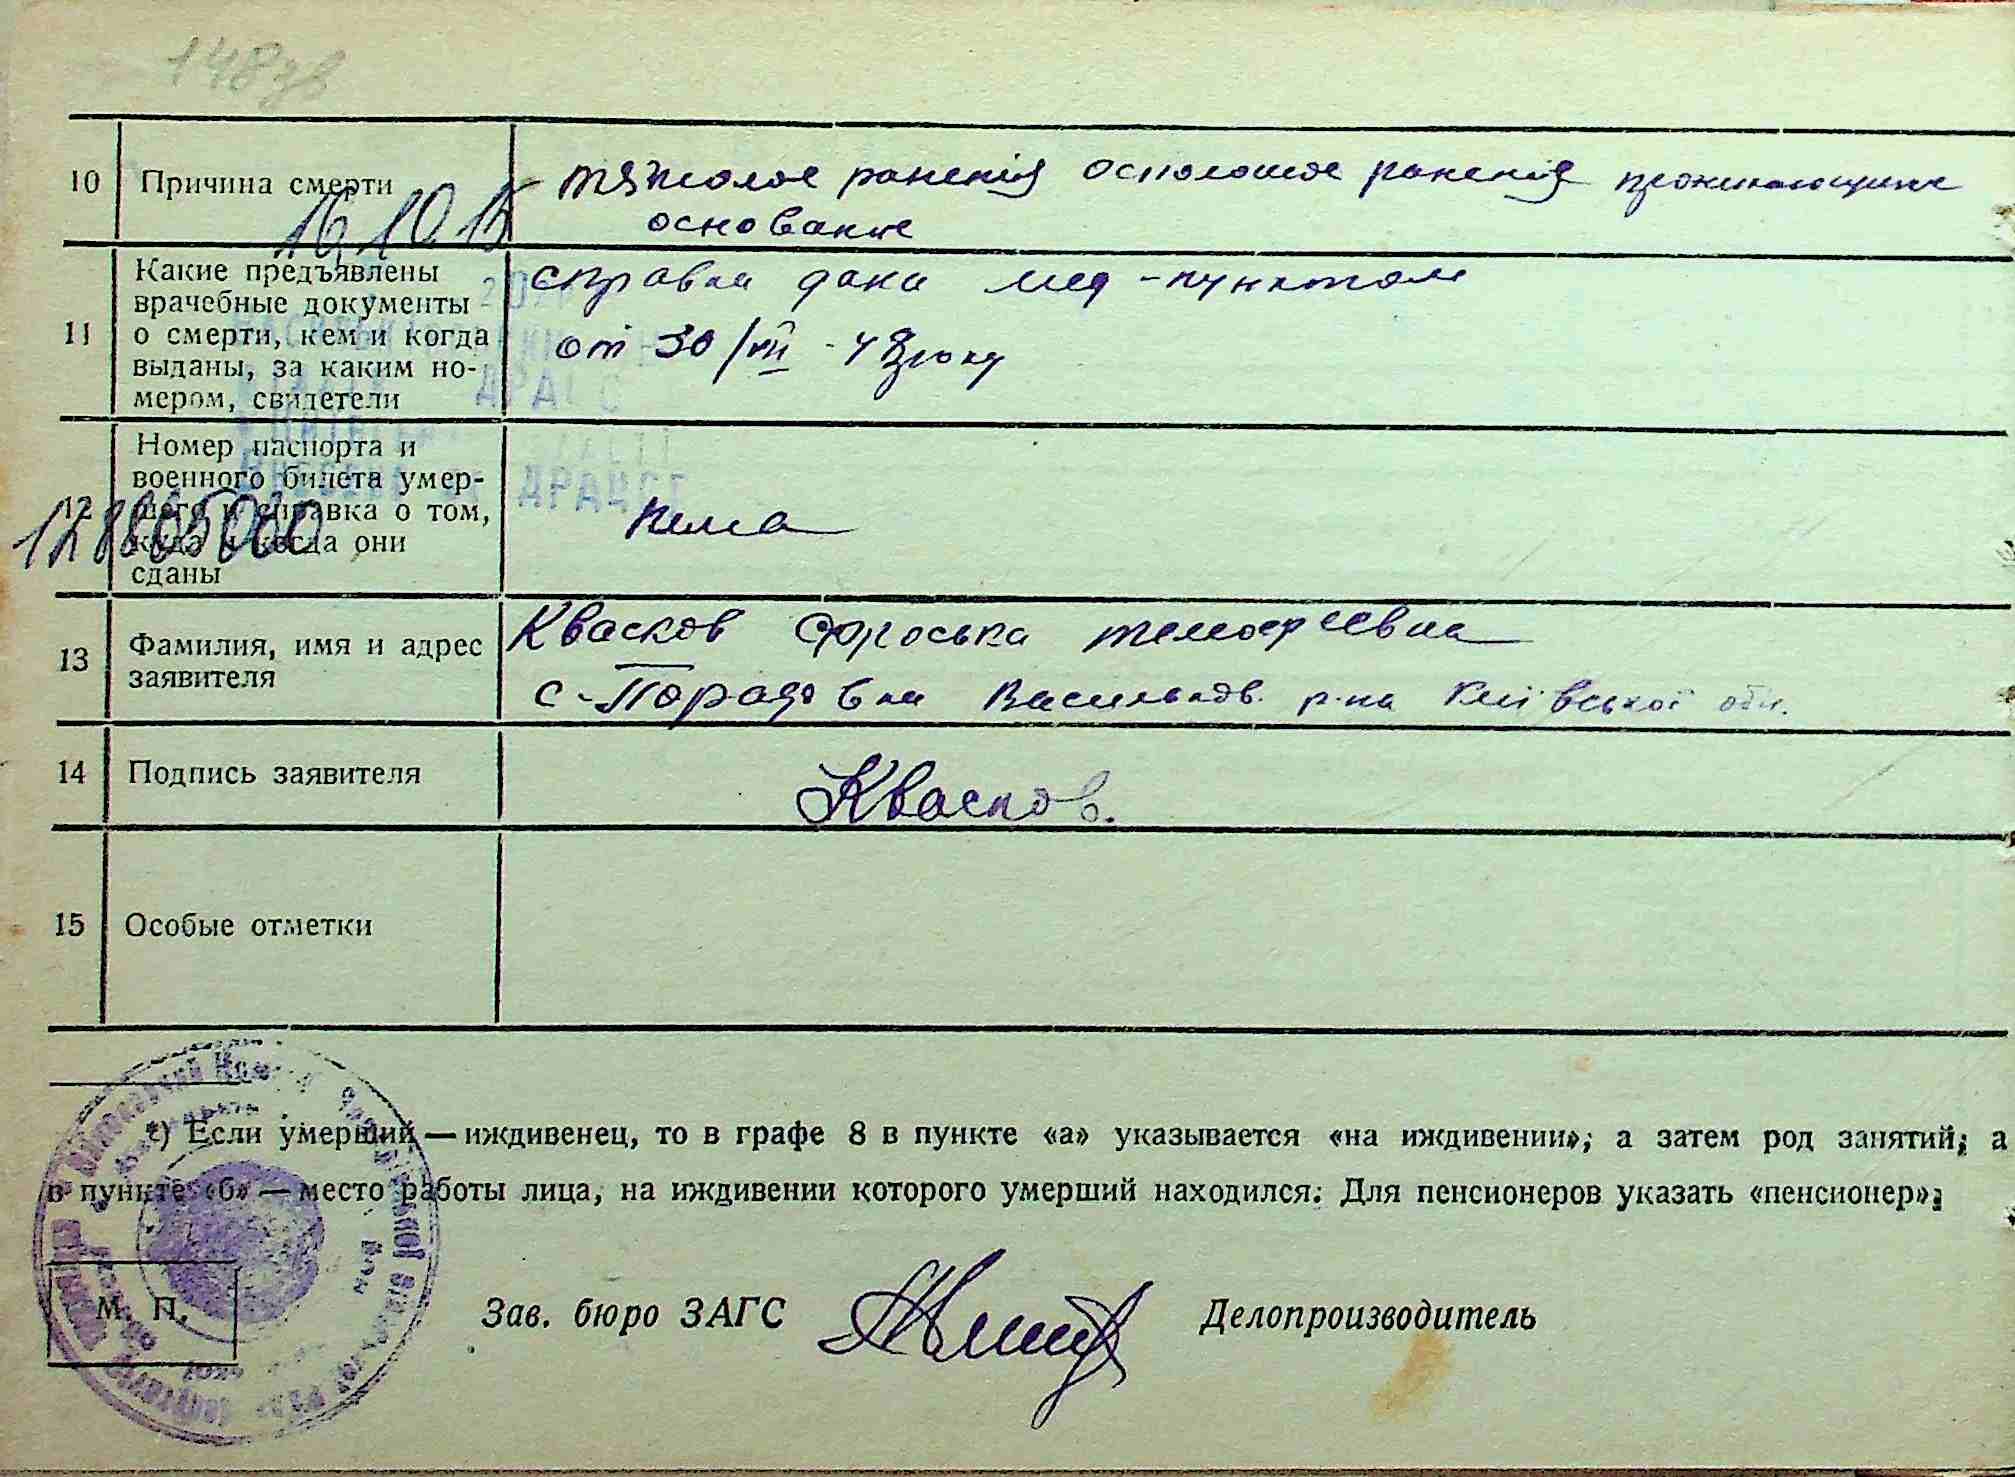 148зв
10 Причина смерти
тяжолое раненія осколошое раненія
основание
16.10.15
11 Какие предъявлены
врачебные документы
о смерти, кем и когда
выданы, за каким но-
мером, свидетели
справка дана мед-пунктом
от 30/VII - 43 року
12 Номер паспорта и
военного билета умер-
шего и справка о том,
куда и когда они
сданы
нема
ДРАЦСГ
13 Фамилия, имя и адрес
заявителя
Квасков Фроська
с-Порадовка Васильков. р-на Киівської обл.
14 Подпись заявителя
Квасков.
15 Особые отметки
*) Если умерший — иждивенец, то в графе 8 в пункте «а» указывается «на иждивении», а затем род занятий, а
в пункте «б» — место работы лица, на иждивении которого умерший находился. Для пенсионеров указать «пенсионер».
М. П.
Зав. бюро ЗАГС
Делопроизводитель